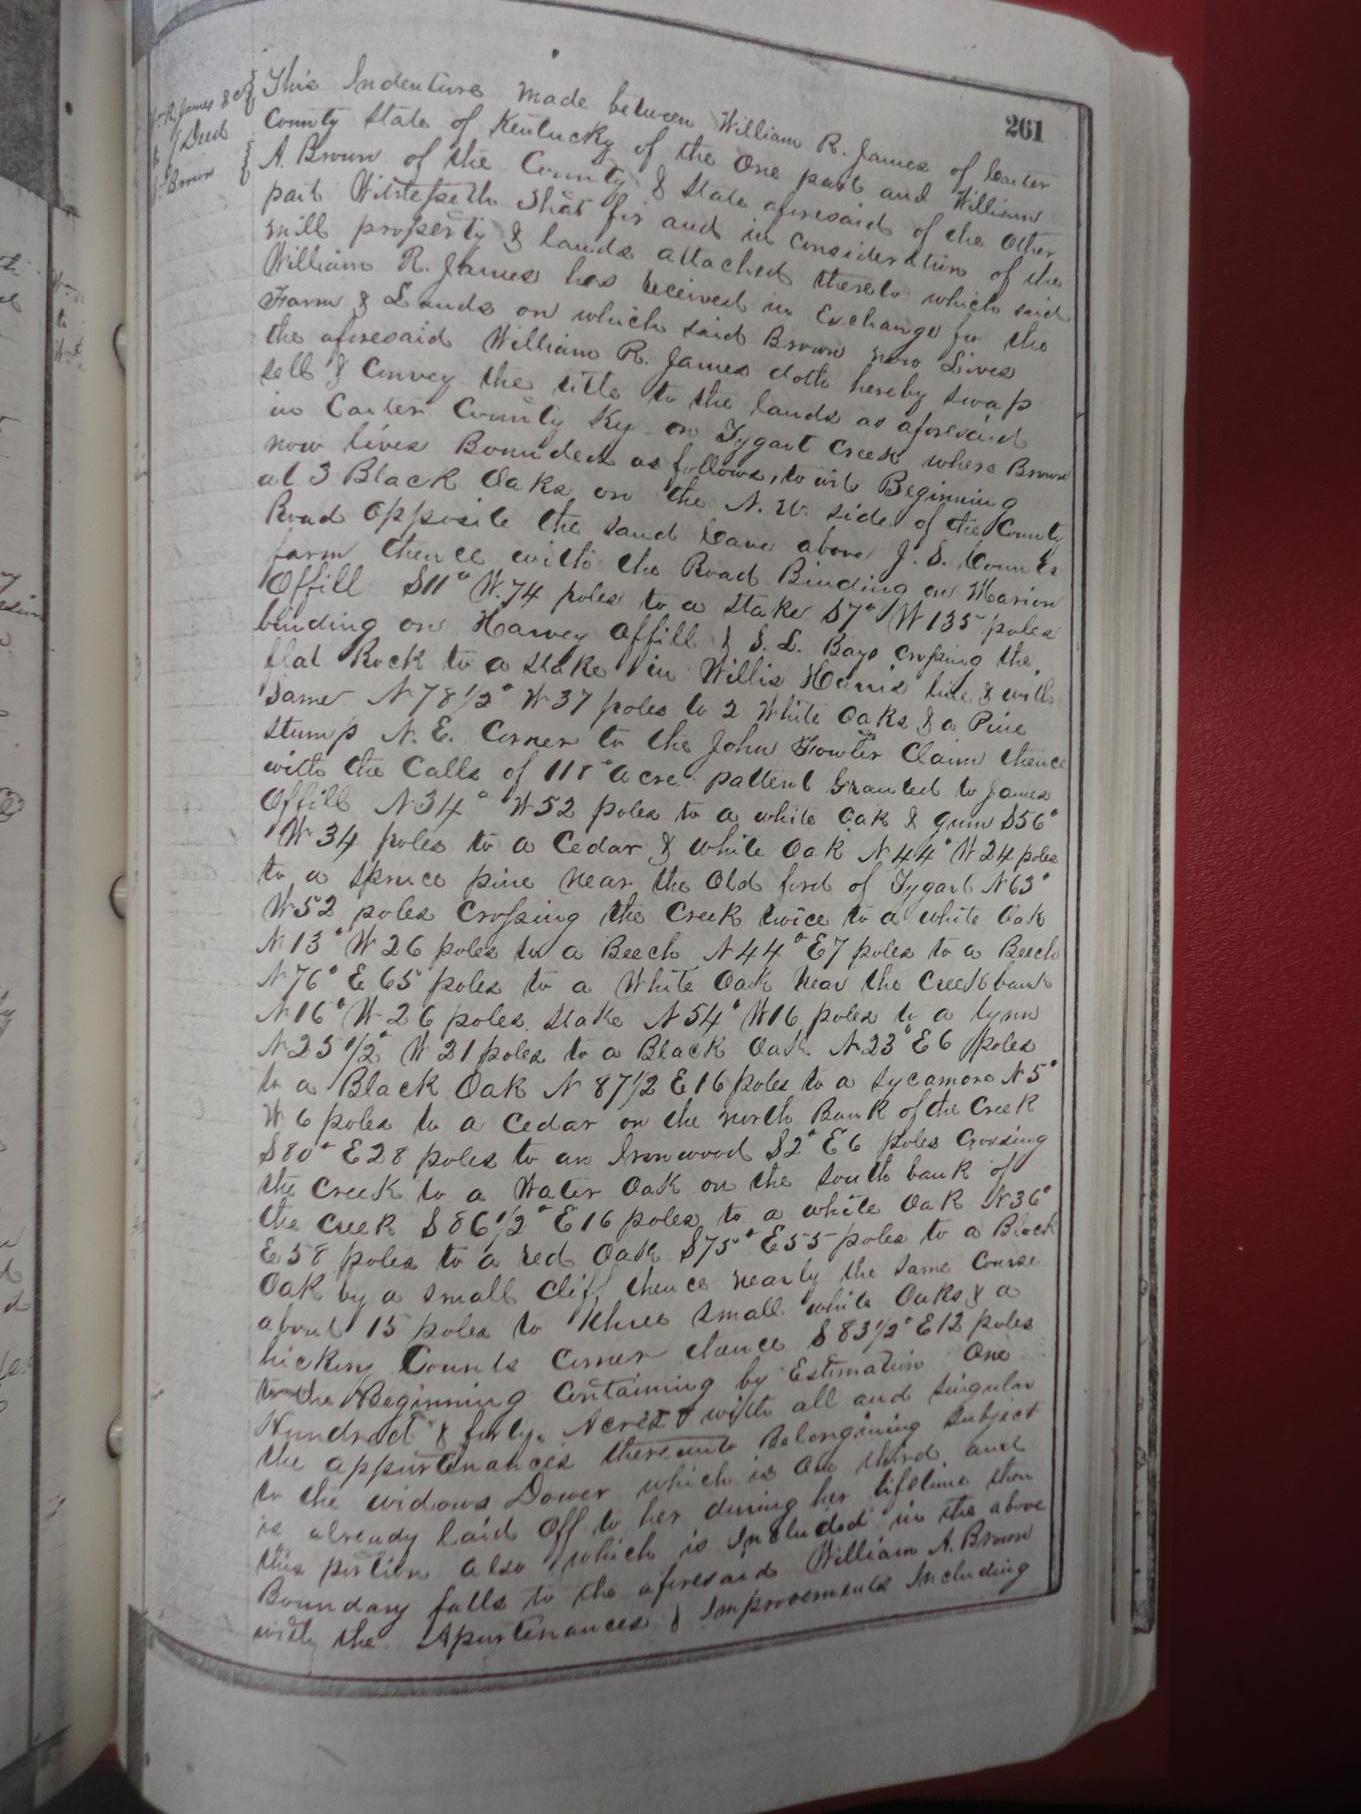 261
Wm R. James & C
to } Deed
Wm Brown
This Indenture made between William R. James of Carter
County State of Kentucky of the One part and William
A. Brown of the County & State aforesaid of the Other
part Witnesseth That for and in consideration of the
mill property & lands attached thereto which said
William R. James has received in Exchange for the
Farm & Lands on which said Brown now Lives
the aforesaid William R. James doth hereby swap
sell & Convey the title to the lands as aforesaid
in Carter County Ky on Tygart Creek where Brown
now lives Bounded as follows, to wit Beginning
at 3 Black Oaks on the N. W. side of the County
Road opposite the sand Cave above J. S. Counts
farm thence with the Road Binding on Marion
Offill S11° W.74 poles to a stake S7° W135 poles
binding on Harvey Offill & S. L. Bays crossing the
flat Rock to a stake in Willis Harris line & with
same N78 1/2° W37 poles to 2 White Oaks & a Pine
stump N. E. Corner to the John Fowler Claim thence
with the Calls of 118 acre pattent Granted to James
Offill N34° W52 poles to a white Oak & gum S56°
W34 poles to a Cedar & white Oak N44° W24 poles
to a Spruce pine near the Old ford of Tygart N63°
W52 poles Crossing the Creek twice to a white Oak
N13° W26 poles to a Beech N44° E7 poles to a Beech
N76° E65 poles to a White Oak Near the Creek bank
N16° W26 poles stake N54° W16 poles to a lynn
N25 1/2° W21 poles to a Black Oak N23° E6 poles
to a Black Oak N 87 1/2 E16 poles to a Sycamore N5°
W6 poles to a Cedar on the north Bank of the Creek
S80° E28 poles to an Ironwood S2° E6 poles Crossing
the Creek to a Water Oak on the South bank of
the Creek S86 1/2° E16 poles to a white Oak N36°
E58 poles to a red Oak S75° E55 poles to a Black
Oak by a small Cliff thence nearly the same Course
about 15 poles to three small white Oaks & a
hickory Counts Corner thence S83 1/2° E12 poles
to the Beginning Containing by Estimation One
Hundred & forty Acres with all and singular
the appurtenances thereunto Belongining subject
to the widows Dower which is One third and
is already laid Off to her during her lifetime then
this portion also which is Included in the above
Boundary falls to the aforesaid William A. Brown
with the Apurtenances & Improvements Including